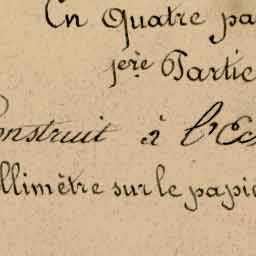 En Quatre pa
1ere Partie
onstruit à l'Ec
llimètre sur le papie